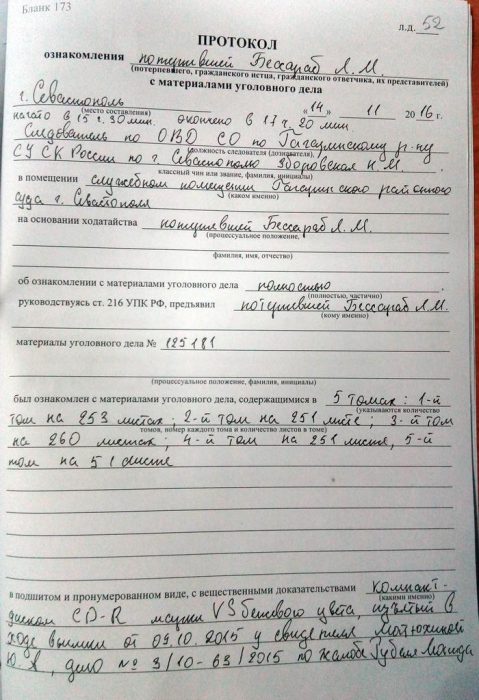 Бланк 173
л.д. 52
ПРОТОКОЛ
ознакомления потерпевшей Бессараб Л.М.
(потерпевшего, гражданского истца, гражданского ответчика, их представителей)
с материалами уголовного дела
г. Севастополь "14" 11 2016 г.
(место составления)
начато в 15 ч. 30 мин. окончено в 17 ч. 20 мин
Следователь по ОВД СО по Гагаринскому р-ну
(должность следователя (дознавателя),
СУ СК России по г. Севастополю Здоровская Н.М.
классный чин или звание, фамилия, инициалы)
в помещении служебном помещении Гагаринского районного
(каком именно)
суда г. Севастополя
на основании ходатайства потерпевшей Бессараб Л.М.
(процессуальное положение,
фамилия, имя, отчество)
об ознакомлении с материалами уголовного дела полностью
(полностью, частично)
руководствуясь ст. 216 УПК РФ, предъявил потерпевшей Бессараб Л.М.
(кому именно)
материалы уголовного дела № 125181
(процессуальное положение, фамилия, инициалы)
был ознакомлен с материалами уголовного дела, содержащимися в 5 томах: 1-й
(указываются количество
том на 253 листах; 2-й том на 251 листе; 3-й том
томов, номер каждого тома и количество листов в томе)
на 260 листах; 4-й том на 251 листе, 5-й
том на 51 листе
в подшитом и пронумерованном виде, с вещественными доказательствами компакт-
(какими именно)
диском CD-R марки VS бежевого цвета, изъятый в
ходе выемки от 09.10.2015 у свидетеля Матюхиной
Ю.А, дело № 3/10-63/2015 по жалобе